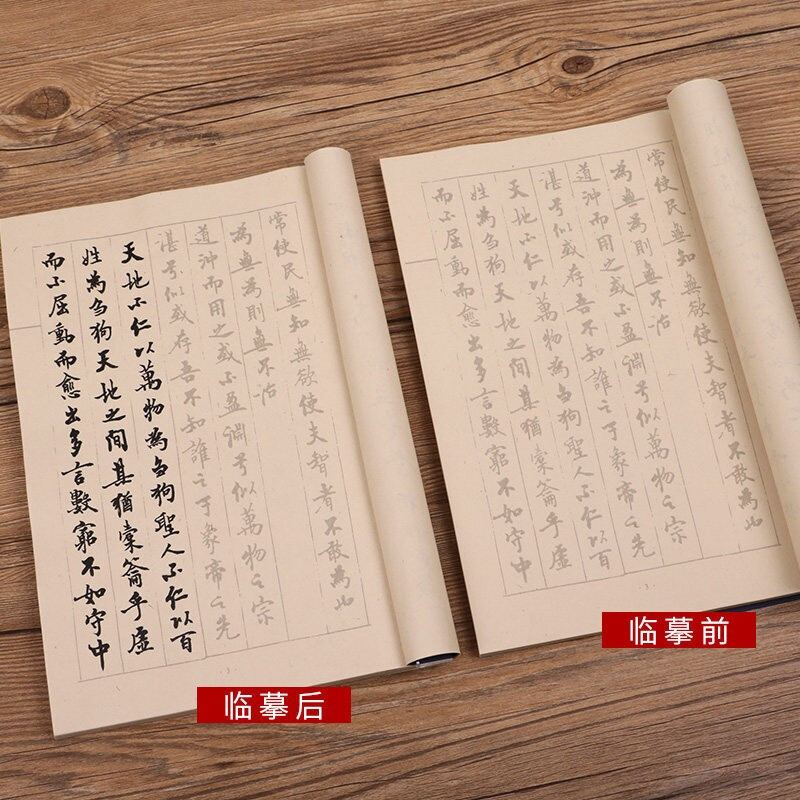 常使民無知無欲使夫智者不敢為也
為無為則無不治
道沖而用之或不盈淵兮似萬物之宗
湛兮似或存吾不知誰之子象帝之先
天地不仁以萬物為芻狗聖人不仁以百
姓為芻狗天地之間其猶橐籥乎虛
而不屈動而愈出多言數窮不如守中
3
临摹后
常使民無知無欲使夫智者不敢為也
為無為則無不治
道沖而用之或不盈淵兮似萬物之宗
湛兮似或存吾不知誰之子象帝之先
天地不仁以萬物為芻狗聖人不仁以百
姓為芻狗天地之間其猶橐籥乎虛
而不屈動而愈出多言數窮不如守中
3
临摹前